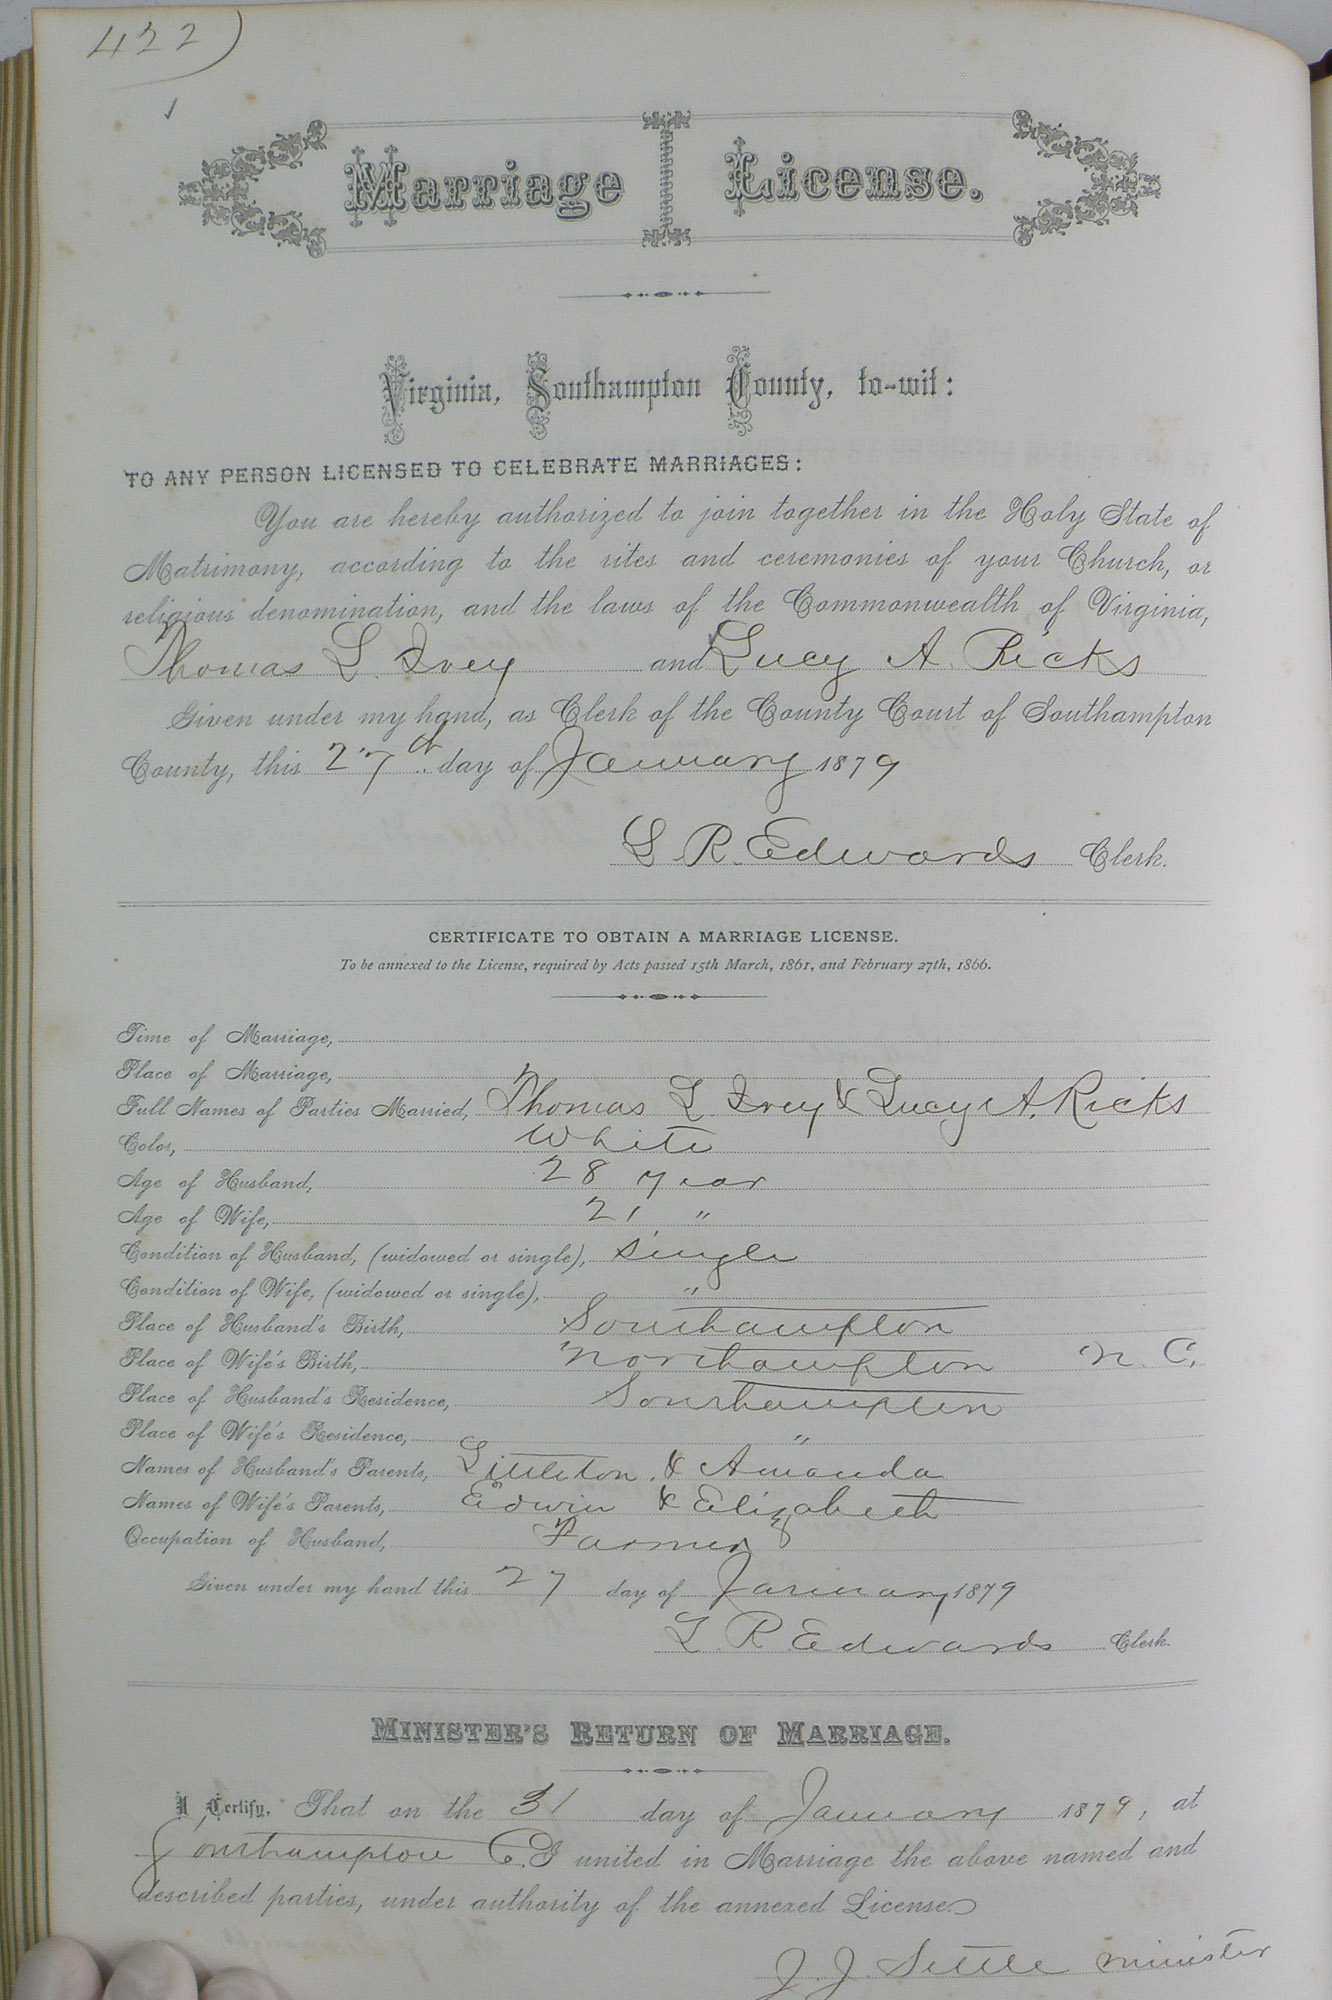 422)
Marriage License.
Virginia, Southampton County, to-wit:
TO ANY PERSON LICENSED TO CELEBRATE MARRIAGES:
You are hereby authorized to join together in the Holy State of
Matrimony, according to the rites and ceremonies of your Church, or
religious denomination, and the laws of the Commonwealth of Virginia,
Thomas L. Ivey and Lucy A. Ricks
Given under my hand, as Clerk of the County Court of Southampton
County, this 27th day of January 1879
L. R. Edwards Clerk.
CERTIFICATE TO OBTAIN A MARRIAGE LICENSE.
To be annexed to the License, required by Acts passed 15th March, 1861, and February 27th, 1866.
Time of Marriage,
Place of Marriage,
Full Names of Parties Married, Thomas L Ivey & Lucy A. Ricks
Color, White
Age of Husband, 28 year
Age of Wife, 21 "
Condition of Husband, (widowed or single), Single
Condition of Wife, (widowed or single), "
Place of Husband's Birth, Southampton
Place of Wife's Birth, Northampton N. C.
Place of Husband's Residence, Southampton
Place of Wife's Residence, "
Names of Husband's Parents, Littleton & Amanda
Names of Wife's Parents, Edwin & Elizabeth
Occupation of Husband, Farmer
Given under my hand this 27 day of January 1879
L R Edwards Clerk.
MINISTER'S RETURN OF MARRIAGE.
I Certify, That on the 31 day of January 1879, at
Southampton Co. I united in Marriage the above named and
described parties, under authority of the annexed License.
J. J. Settle minister